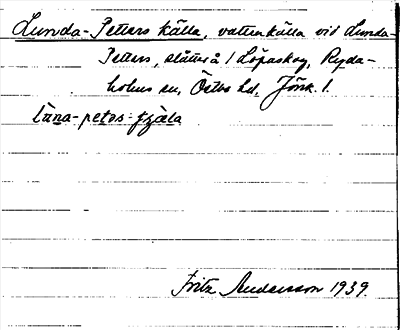 Lunda-Petters källa, vattenkälla vid Lunda-
Petters, slåtterå / Löpaskog, Ryda-
holms sn, Östbo hd, Jönk. l.
luna-petəs-
Fritz Andersson 1939.